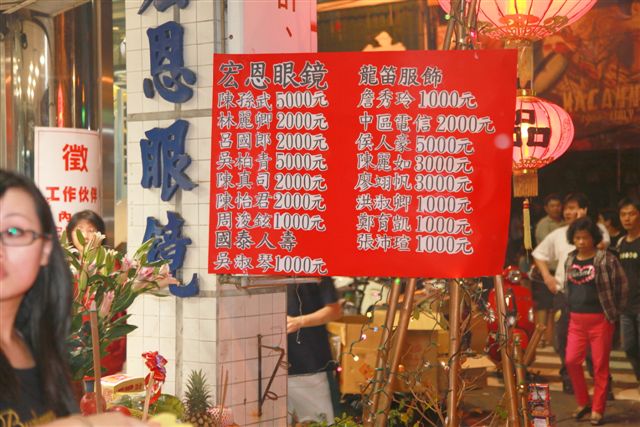 宏恩眼鏡
陳孫武5000元
林麗卿2000元
呂國郎2000元
吳柏青5000元
陳真司2000元
陳怡君2000元
周浚鉉1000元
國泰人壽
吳淑琴1000元
龍笛服飾
詹秀玲1000元
中區電信2000元
侯人豪5000元
陳麗如3000元
廖翊帆3000元
洪淑卿1000元
鄭育凱1000元
張沛瑄1000元
恩眼鏡
徵
工作伙伴
內
品